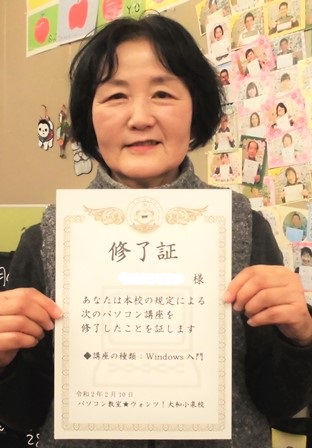 修了証
様
あなたは本校の規定による
次のパソコン講座を
修了したことを証します
◆講座の種類：Windows入門
令和2年2月10日
パソコン教室★ウィンツ！大和小泉校